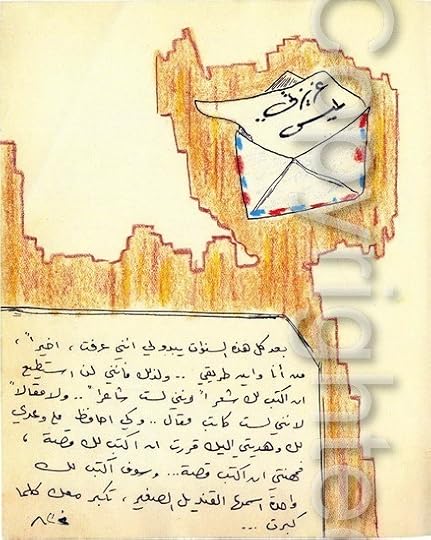 عزيزتي
لميس ..
بعد كل هذه السنوات يبدو لي انني عرفت ، اخيراً ،
من أنا واين طريقي .. ولذلك فانني لن استطيع
ان اكتب لك شعراً لست شاعراً .. ولا مقالاً
لانني لست كاتب مقال .. ولكي احافظ على وعدي
لك وهديتي اليك قررت ان اكتب لك قصة ،
فمهنتي ان اكتب قصة... وسوف اكتب لك
واحدة اسمها القنديل الصغير ، تكبر معك كلما
كبرت ...
Copyrighte